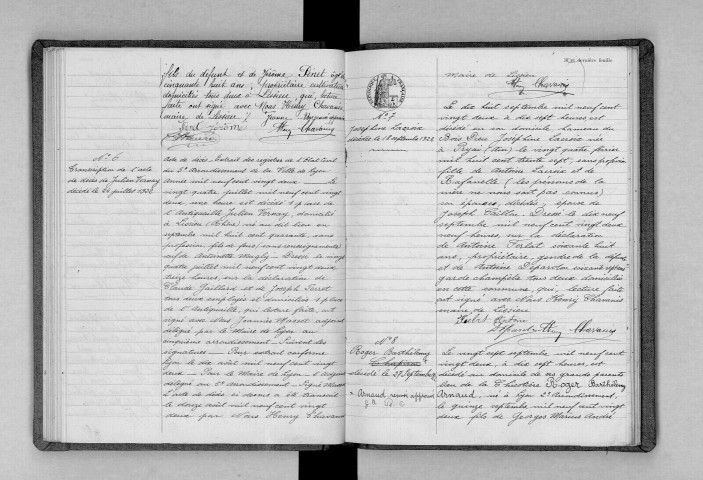 fils du défunt et de Jérôme Pinet âgé de
cinquante huit ans, propriétaire cultivateur
domiciliés tous deux à Lissieu qui, lecture
faite ont signé avec Nous Henry Chavanis
maire de Lissieu
N° 6
Transcription de l'acte
de décès de Julien Vernay
décédé le 24 juillet 1922
Acte de décès. Extrait des registres de l'Etat Civil
du 5e Arrondissement de la Ville de Lyon
année mil neuf cent vingt deux — Le
vingt quatre juillet mil neuf cent vingt
deux, une heure est décédé 1 place de
l'Antiquaille Julien Vernay, domicilié
à Lissieu (Rhône) né au dit lieu en
septembre mil huit cent quarante, sans
profession, fils de feus (sans renseignements)
veuf de Antoinette — Dressé le vingt
quatre juillet mil neuf cent vingt deux
treize heures, sur la déclaration de
Claude Gaillard et de Joseph Perret
tous deux employés et domiciliés 1 place
de l'Antiquaille, qui lecture faite, ont
signé avec Nous Joannès Massot adjoint
délégué par le Maire de Lyon au
cinquième arrondissement — Suivent les
signatures — Pour extrait conforme
Lyon le dix août mil neuf cent vingt
deux — Pour le Maire de Lyon — L'adjoint
délégué au 5e Arrondissement — Signé Massot
L'acte de décès ci dessus a été transcrit
le douze août mil neuf cent vingt
deux par Nous Henry Chavanis
dernière feuille
maire de Lissieu
Hry Chavanis
N° 7
Josephine Lacroix
décédée le 18 septembre 1922
Le dix huit septembre mil neuf cent
vingt deux à dix sept heures est
décédée en son domicile hameau du
Bois Dieu Josephine Lacroix née
à (Ain) le vingt quatre février
mil huit cent trente sept, sans profession
fille de Antoine Lacroix et de
(les prénoms de la
mère ne nous sont pas connus)
son épouse, décédés, épouse de
Joseph. Dressé le dix neuf
septembre mil neuf cent vingt deux
neuf heures, sur la déclaration
de Antoine soixante huit
ans, propriétaire, gendre de la défunte
et de Antoine
garde champêtre tous deux domiciliés
en cette commune qui, lecture faite
ont signé avec Nous Henry Chavanis
maire de Lissieu
Hry Chavanis
N° 8
Roger Barthélemy
décédé le 27 Septembre
Arnaud
Le vingt sept septembre mil neuf cent
vingt deux, à dix sept heures, est
décédé au domicile de ses grands parents
lieu de la Roger Barthélemy
Arnaud, né à Lyon 2e Arrondissement,
le quinze septembre mil neuf cent vingt
deux fils de Georges Marius André